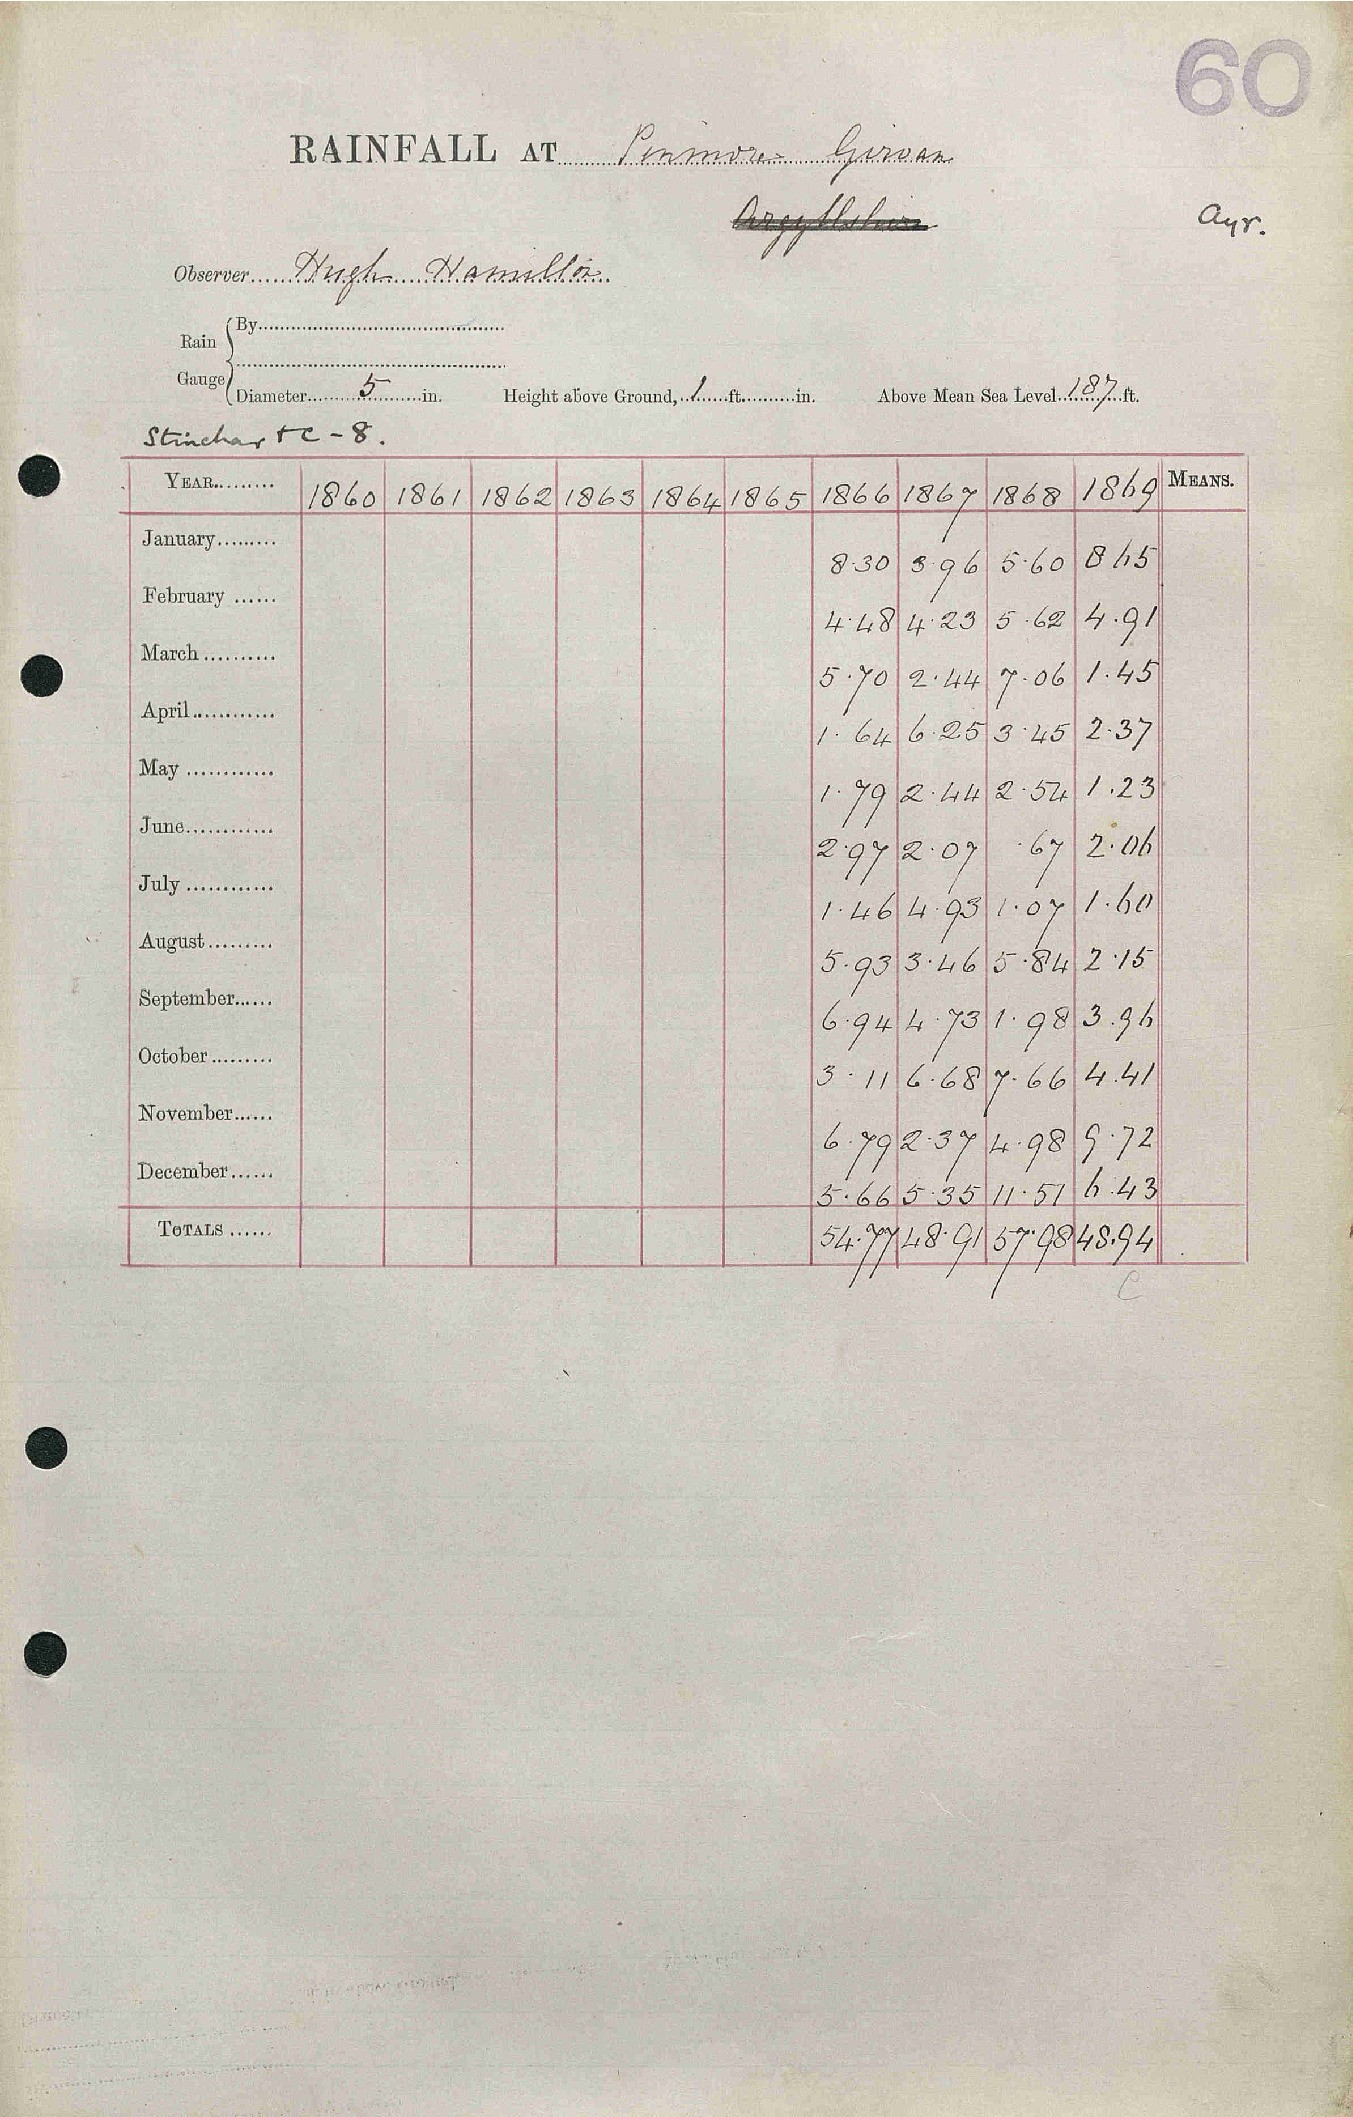 60
RAINFALL AT Pinmore Girvan
Argyllshire
Ayr.
Observer Hugh Hamilton
Rain Gauge By
Diameter 5 in. Height above Ground, 1 ft. in. Above Mean Sea Level 187 ft.
Stinchar + C - 8.
YEAR 1860 1861 1862 1863 1864 1865 1866 1867 1868 1869 MEANS.
January 8.30 3.96 5.60 8.65
February 4.48 4.23 5.62 4.91
March 5.70 2.44 7.06 1.45
April 1.64 6.25 3.45 2.37
May 1.79 2.44 2.54 1.23
June 2.97 2.07 .67 2.06
July 1.46 4.93 1.07 1.60
August 5.93 3.46 5.84 2.15
September 6.94 4.73 1.98 3.96
October 3.11 6.68 7.66 4.41
November 6.79 2.37 4.98 9.72
December 5.66 5.35 11.51 6.43
TOTALS 54.77 48.91 57.98 48.94
C